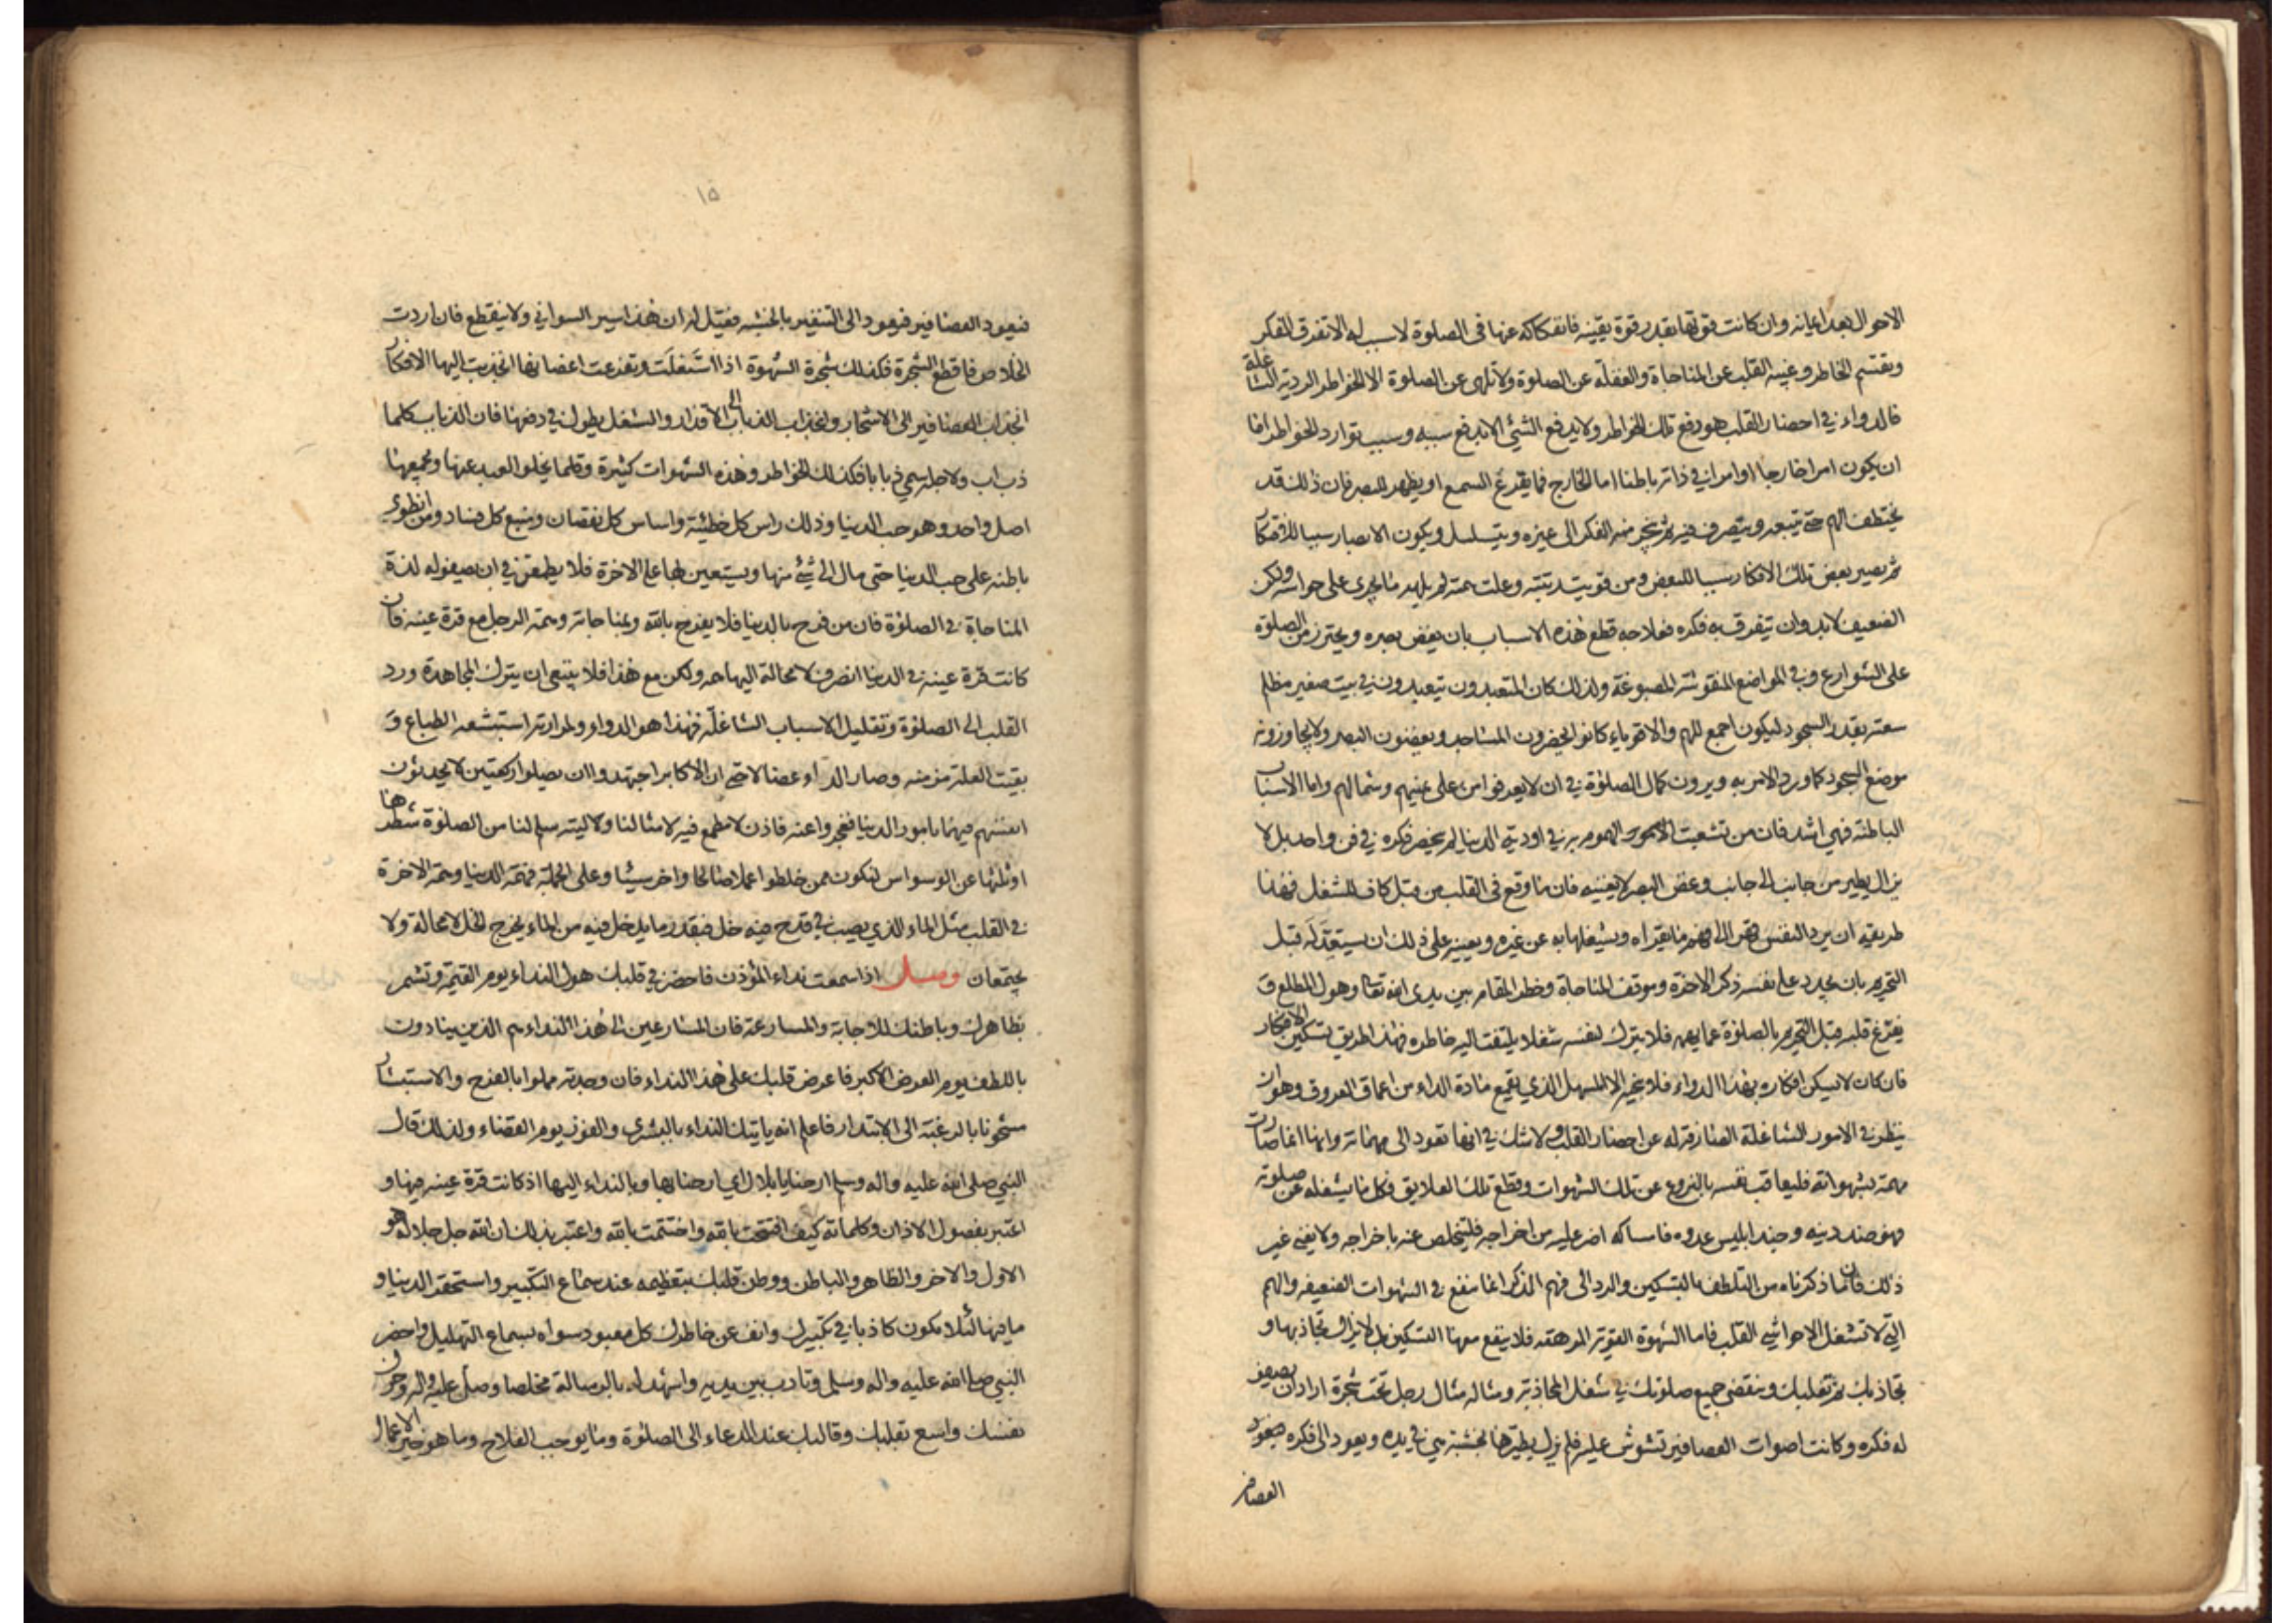 الاحوال بعد ايمانه وان كانت قوتها بقدر قوة يقينه فانفكاكه عنها في الصلوة لاسبب له الا تفرق الفكر
وتقسم الخاطر وغيبة القلب عن المناجاة والغفلة عن الصلوة ولا تلهى عن الصلوة الا الخواطر الردية الشاغلة
فالدواء في احضار القلب هو دفع تلك الخواطر ولا يدفع الشئ الا بدفع سببه وسبب توارد الخواطر اما
ان يكون امرا خارجا او امرا في ذاته باطنا اما الخارج فما يقرع السمع او يظهر للبصر فان ذلك قد
يختطف الهم حتى يتبعه ويتصرف فيه ثم ينجر منه الفكر الى غيره ويتسلسل ويكون الابصار سببا للافتكار
ثم يصير بعض تلك الافكار سببا للبعض ومن قويت رتبته وعلت همته لم يلهه ما يجرى على حواسه ولكن
الضعيف لابد وان يتفرق به فكره فعلاجه قطع هذه الاسباب بان يغض بصره ويحترز من الصلوة
على الشوارع وفي المواضع المنقوشة المصبوغة ولذلك كان المتعبدون يتعبدون في بيت صغير مظلم
سعته بقدر السجود ليكون اجمع للهم والاقوياء كانوا يحضرون المساجد ويغضون البصر ولا يجاوزونه
موضع السجود كما ورد الامر به ويرون كمال الصلوة في ان لا يعرفوا من على يمينهم وشمالهم واما الاسباب
الباطنة فهي اشد فان من تشعبت الامور والهموم به في اودية الدنيا لم ينحصر فكره في فن واحد بل لا
يزال يطير من جانب الى جانب وغض البصر لا يغنيه فان ما وقع في القلب من قبل كاف للشغل فهذا
طريقه ان يرد النفس قهرا الى فهم ما يقراه ويشغلها به عن غيره ويعينه على ذلك ان يستعد له قبل
التحريم بان يجدد على نفسه ذكر الاخرة وموقف المناجاة وخطر المقام بين يدى الله تعالى وهول المطلع و
يفرغ قلبه قبل التحريم بالصلوة عما يهمه فلا يترك لنفسه شغلا يلتفت اليه خاطره فهذا طريق تسكين الافكار
فان كان لا يسكن افكاره بهذا الدواء فلا ينجيه الا المسهل الذي يقمع مادة الداء من اعماق العروق وهو ان
ينظر في الامور الشاغلة الصارفة له عن احضار القلب ولا شك في انها تعود الى مهماته وانها انما صارت
مهمة بشهواته فليعاقب نفسه بالنزوع عن تلك الشهوات وقطع تلك العلايق فكل ما يشغله عن صلوته
فهو ضد دينه وجند ابليس عدوه فامساكه اضر عليه من اخراجه فليتخلص عنه باخراجه ولا يغني غير
ذلك فان ما ذكرناه من التلطف بالتسكين والرد الى فهم الذكر انما ينفع في الشهوات الضعيفه والهم
التي لا تشغل الا حواشي القلب فاما الشهوة القوية المرهقه فلا ينفع معها التسكين بل لا يزال تجاذبها و
تجاذبك ثم تغلبك وينقضي جميع صلوتك في شغل المجاذبة ومثاله مثال رجل تحت شجرة اراد ان يصفو
له فكره وكانت اصوات العصافير تشوش عليه فلم يزل يطيرها بخشبة هي في يده ويعود الى فكره فيعود
العصافير
١٥
فيعود العصافير فيعود الى التنفير بالخشبه فقيل له ان هذا سير السواني ولا ينقطع فان اردت
الخلاص فاقطع الشجرة فكذلك شجرة الشهوة اذا اشتعلت وتفرعت اغصانها انجذبت اليها الافكار
انجذاب العصافير الى الاشجار وانجذاب الذباب الى الاقذار والشغل يطول في دفعها فان الذباب كلما
ذب اب ولاجله سمي ذبابا فكذلك الخواطر وهذه الشهوات كثيرة وقلما يخلو العبد عنها ويجمعها
اصل واحد وهو حب الدنيا وذلك راس كل خطيئة واساس كل نقصان ومنبع كل فساد ومن انطوى
باطنه على حب الدنيا حتى مال الى شئ منها ويستعين بها على الاخرة فلا يطمعن في ان يصفو له لذة
المناجاة في الصلوة فان من فرح بالدنيا فلا يفرح بالله وبمناجاته وهمة الرجل مع قرة عينه فان
كانت قرة عينه في الدنيا انصرف لا محالة اليها همه ولكن مع هذا فلا ينبغي ان يترك المجاهدة ورد
القلب الى الصلوة وتقليل الاسباب الشاغلة فهذا هو الدواء ولمرارته استبشعه الطباع و
بقيت العلة مزمنه وصار الداء عضالا حتى ان الاكابر اجتهدوا ان يصلوا ركعتين لا يحدثون
انفسهم فيهما بامور الدنيا فعجزوا عنه فاذن لا مطمع فيه لامثالنا ولا ليته سلم لنا من الصلوة شطرها
او ثلثها عن الوسواس لنكون ممن خلطوا عملا صالحا واخر سيئا وعلى الجملة فهمة الدنيا وهمة الاخرة
في القلب مثل الماء الذي يصب في قدح فيه خل فبقدر ما يدخل فيه من الماء يخرج الخل لا محالة ولا
يجتمعان وصل اذا سمعت نداء المؤذن فاحضر في قلبك هول النداء يوم القيمة وتشمر
بظاهرك وباطنك للاجابة والمسارعة فان المسارعين الى هذا النداء هم الذين ينادون
باللطف يوم العرض الاكبر فاعرض قلبك على هذا النداء فان وجدته مملوا بالفرح والاستبشار
مشحونا بالرغبة الى الابتدار فاعلم انه ياتيك النداء بالبشرى والفوز يوم القضاء ولذلك قال
النبي صلى الله عليه واله وسلم ارحنا يا بلال اي ارحنا بها وبالنداء اليها اذ كانت قرة عينه فيها و
اعتبر بفصول الاذان وكلماته كيف افتتحت بالله واختتمت بالله واعتبر بذلك ان الله جل جلاله هو
الاول والاخر والظاهر والباطن ووطن قلبك بتعظيمه عند سماع التكبير واستحقر الدنيا و
ما فيها لئلا يكون كاذبا في تكبيرك وانف عن خاطرك كل معبود سواه بسماع التهليل واحضر
النبي صلى الله عليه واله وسلم وتادب بين يديه واشهد له بالرسالة مخلصا وصل عليه واله وحرك
نفسك واسع بقلبك وقالبك عند الدعاء الى الصلوة وما يوجب الفلاح وما هو خير الاعمال